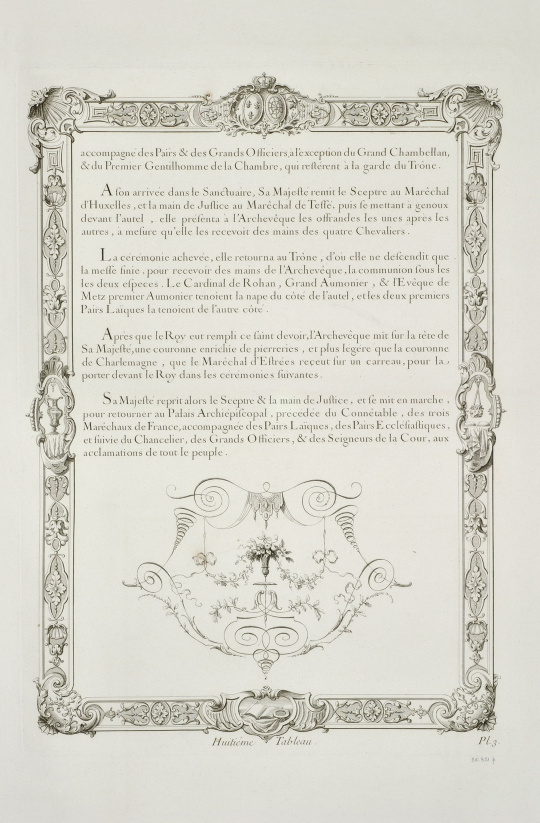 accompagné des Pairs & des Grands Officiers, à l'exception du Grand Chambellan,
& du Premier Gentilhomme de la Chambre, qui restèrent à la garde du Trône.
A son arrivée dans le Sanctuaire, Sa Majesté remit le Sceptre au Maréchal
d'Huxelles, et la main de Justice au Maréchal de Tessé, puis se mettant a genoux
devant l'autel, elle présenta à l'Archevêque les offrandes les unes après les
autres, à mesure qu'elle les recevoit des mains des quatre Chevaliers.
La ceremonie achevée, elle retourna au Trône, d'où elle ne descendit que
la messe finie, pour recevoir des mains de l'Archevêque, la communion sous les
les deux especes. Le Cardinal de Rohan, Grand Aumonier, & l'Evêque de
Metz premier Aumonier tenoient la nape du côté de l'autel, et les deux premiers
Pairs Laïques la tenoient de l'autre côté.
Après que le Roy eut rempli ce saint devoir, l'Archevêque mit sur la tête de
Sa Majesté, une couronne enrichie de pierreries, et plus legere que la couronne
de Charlemagne, que le Maréchal d'Estrées reçeut sur un carreau, pour la
porter devant le Roy dans les cérémonies suivantes.
Sa Majesté reprit alors le Sceptre & la main de Justice, et se mit en marche,
pour retourner au Palais Archiépiscopal, precedée du Connétable, des trois
Maréchaux de France, accompagnée des Pairs Laïques, des Pairs Ecclesiastiques,
et suivie du Chancelier, des Grands Officiers, & des Seigneurs de la Cour, aux
acclamations de tout le peuple.
Huitiéme Tableau.
Pl. 3.